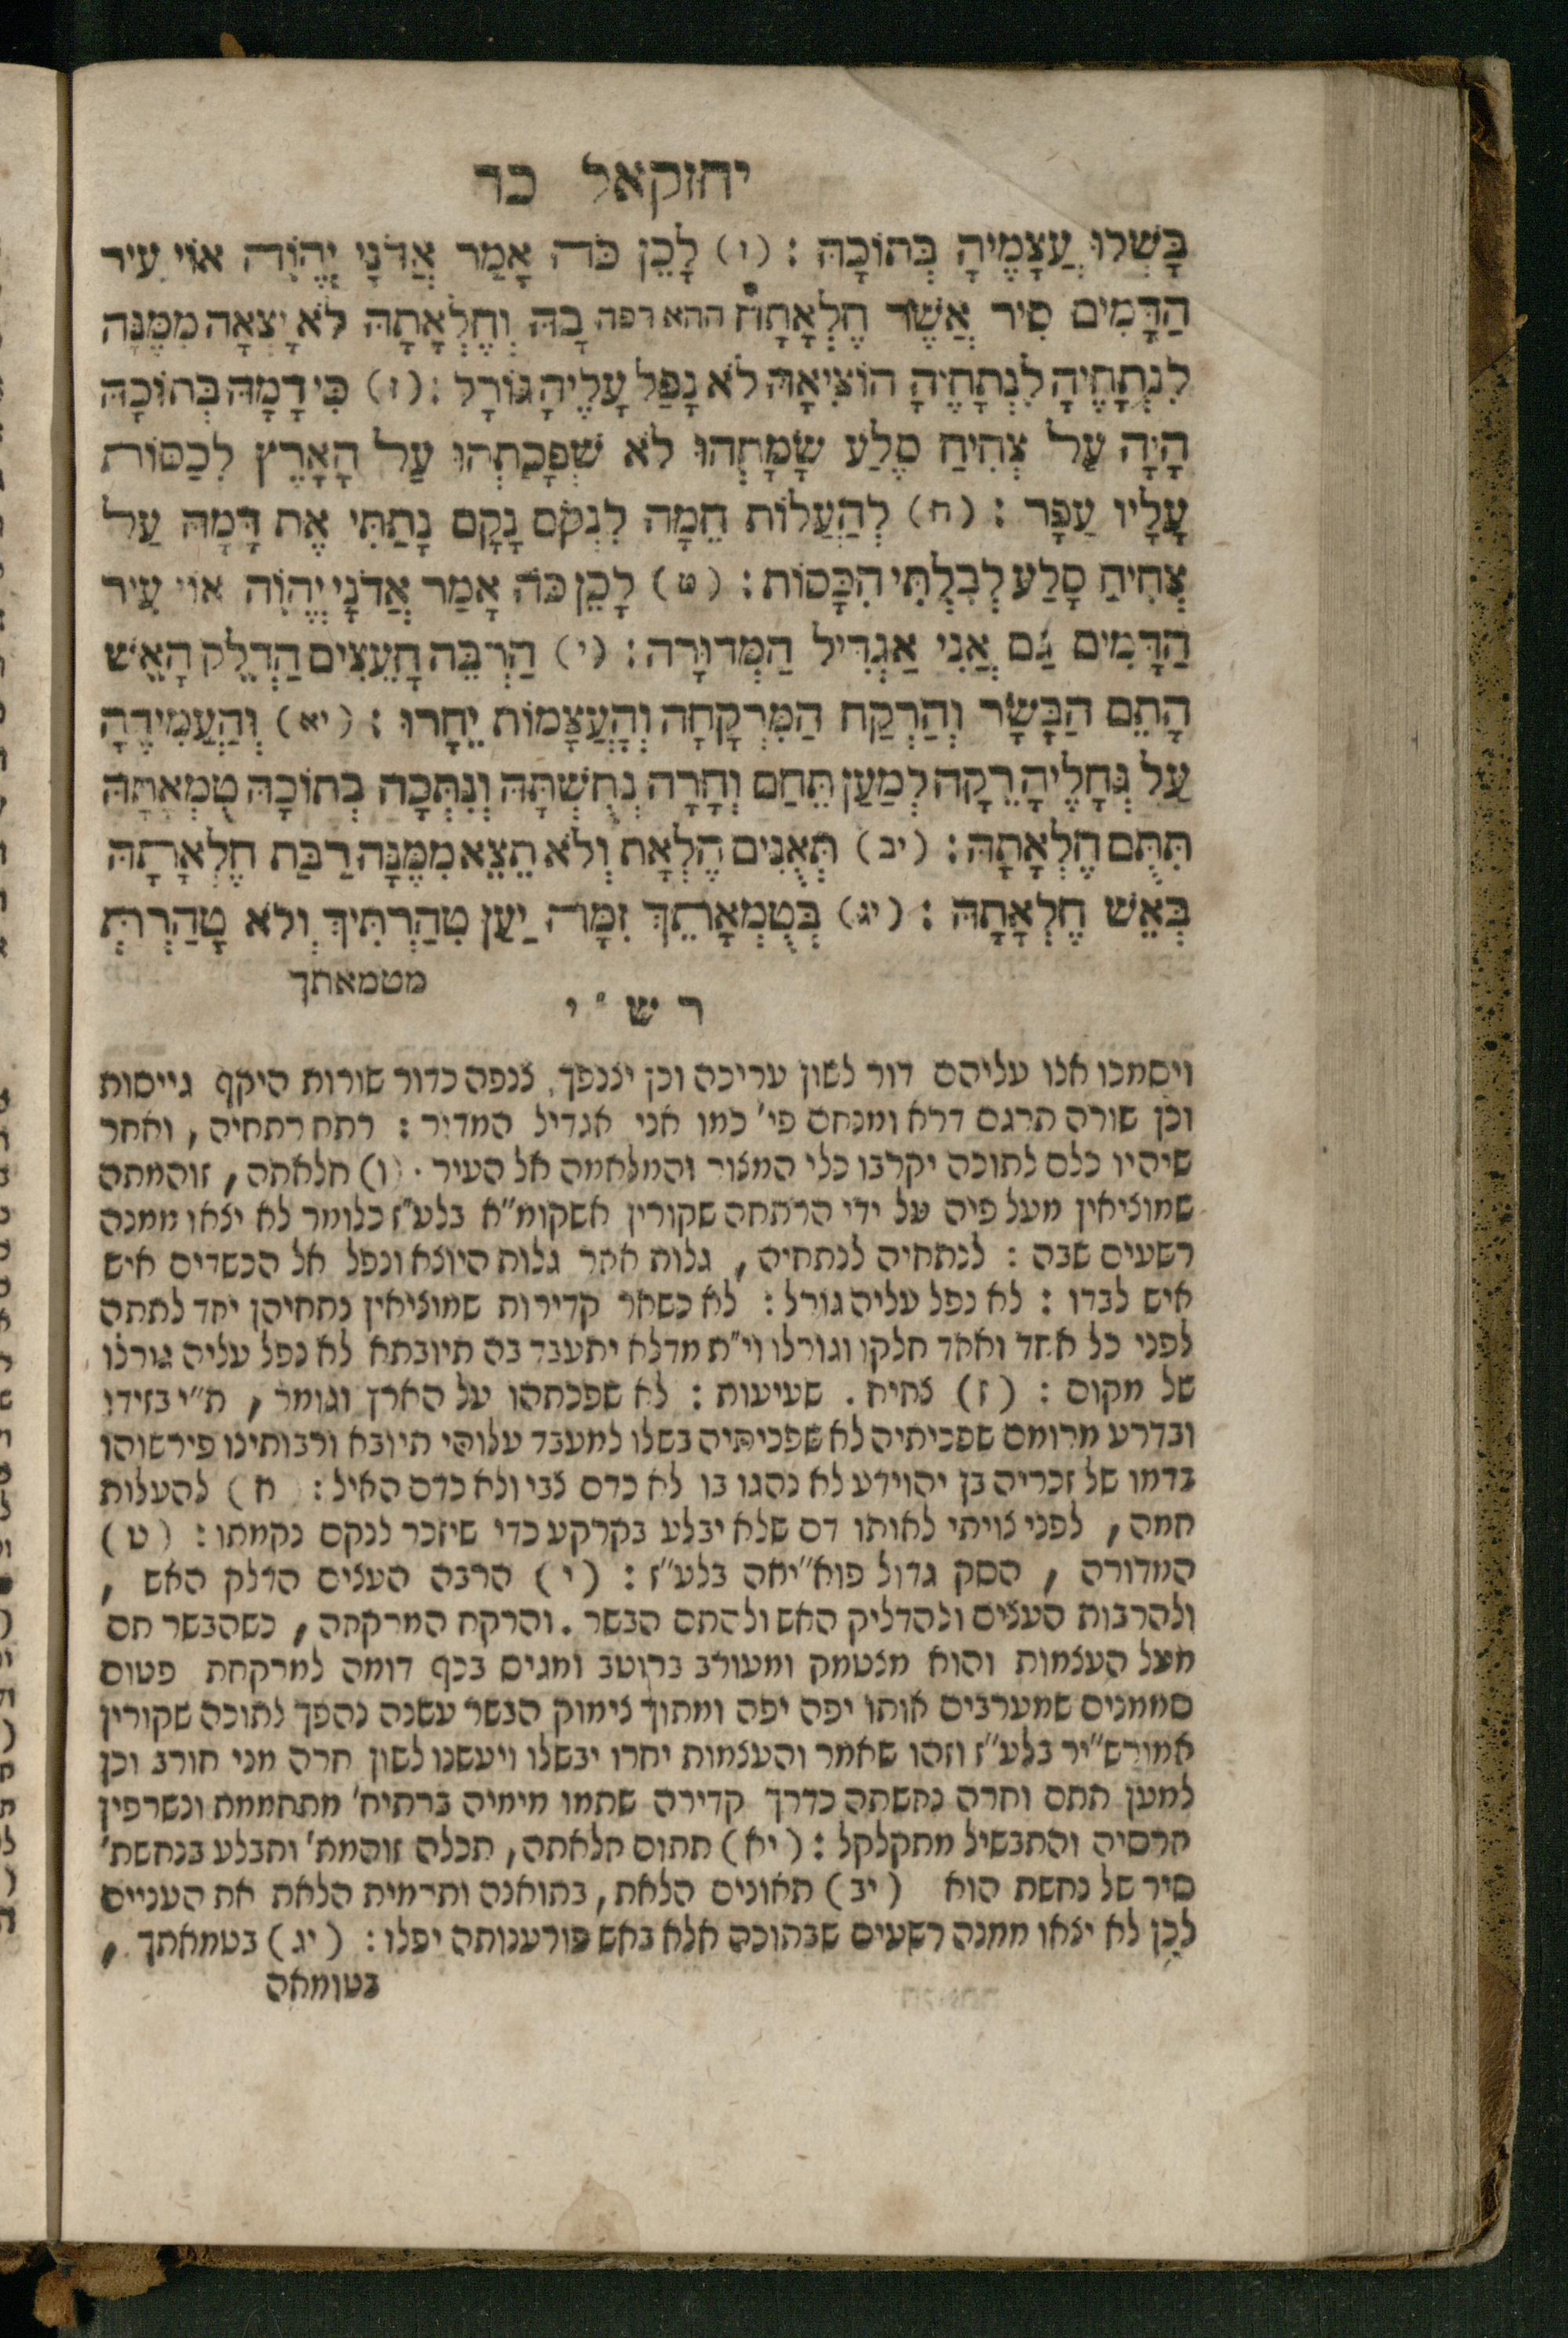 יחזקאל כד
בָּשְׁלוּ עֲצָמֶיהָ בְּתוֹכָהּ : (ו) לָכֵן כֹּה אָמַר אֲדֹנָי יֱהֹוִה אוֹי עִיר
הַדָּמִים סִיר אֲשֶׁר חֶלְאָתָה ההא רפה בָהּ וְחֶלְאָתָהּ לֹא יָצְאָה מִמֶּנָּה
לִנְתָחֶיהָ לִנְתָחֶיהָ הוֹצִיאָהּ לֹא נָפַל עָלֶיהָ גּוֹרָל : (ז) כִּי דָמָהּ בְּתוֹכָהּ
הָיָה עַל צְחִיחַ סֶלַע שָׂמָתְהוּ לֹא שְׁפָכַתְהוּ עַל הָאָרֶץ לְכַסּוֹת
עָלָיו עָפָר : (ח) לְהַעֲלוֹת חֵמָה לִנְקֹם נָקָם נָתַתִּי אֶת דָּמָהּ עַל
צְחִיחַ סָלַע לְבִלְתִּי הִכָּסוֹת : (ט) לָכֵן כֹּה אָמַר אֲדֹנָי יֱהֹוִה אוֹי עִיר
הַדָּמִים גַּם אֲנִי אַגְדִּיל הַמְּדוּרָה : (י) הַרְבֵּה הָעֵצִים הַדְלֵק הָאֵשׁ
הָתֵם הַבָּשָׂר וְהַרְקַח הַמֶּרְקָחָה וְהָעֲצָמוֹת יֵחָרוּ : (יא) וְהַעֲמִידֶהָ
עַל גֶּחָלֶיהָ רֵקָה לְמַעַן תֵּחַם וְחָרָה נְחֻשְׁתָּהּ וְנִתְּכָה בְתוֹכָהּ טֻמְאָתָהּ
תִּתֻּם חֶלְאָתָהּ : (יב) תְּאֻנִים הֶלְאָת וְלֹא תֵצֵא מִמֶּנָּה רַבַּת חֶלְאָתָהּ
בְּאֵשׁ חֶלְאָתָהּ : (יג) בְּטֻמְאָתֵךְ זִמָּה יַעַן טִהַרְתִּיךְ וְלֹא טָהַרְתְּ
מטמאתך
רש״י
ויסמכו אנו עליהם דור לשון עריכה וכן יצנפך, צנפה כדור שורות היקף גייסות
וכן שורה תרגם דרא ומנחם פי׳ כמו אני אגדיל המדור : רתח רתחיה , ואחר
שיהיו כלם לתוכה יקרבו כלי המצור והמלחמה אל העיר . (ו) חלאתה , זוהמתה
שמוציאין מעל פיה על ידי הרתחה שקורין אשקומ״א בלע״ז כלומר לא יצאו ממנה
רשעים שבה : לנתחיה לנתחיה , גלות אחר גלות היוצא ונפל אל הכשדים איש
איש לבדו : לא נפל עליה גורל : לא כשאר קדירות שמוציאין נתחיהן יחד לתתה
לפני כל אחד ואחד חלקו וגורלו וי״ת מדלא יתעבד בה תיובתא לא נפל עליה גורלו
של מקום : (ז) צחיח . שעיעות : לא שפכתהו על הארץ וגומר , ת״י בזידו
ובדרע מרומם שפכיתיה לא שפכיתיה בשלו למעבד עלוהי תיובא ורבותינו פירשוהו
בדמו של זכריה בן יהוידע לא נהגו בו לא כדם צבי ולא כדם האיל : (ח) להעלות
חמה , לפני צויתי לאותו דם שלא יבלע בקרקע כדי שיזכר לנקם נקמתו : (ט)
המדורה , הסק גדול פוא״יאה בלע״ז : (י) הרבה העצים הדלק האש ,
ולהרבות העצים ולהדליק האש ולהתם הבשר . והרקח המרקחה , כשהבשר תם
מעל העצמות והוא מצטמק ומעורב ברוטב ומגיס בכף דומה למרקחת פטום
סממנים שמערבים אותו יפה יפה ומתוך צימוק הבשר עשנה נהפך לתוכה שקורין
אמורש״יר בלע״ז וזהו שאמר והעצמות יחרו יבשלו ויעשנו לשון חרה מני חורב וכן
למען תחם וחרה נחשתה כדרך קדירה שתמו מימיה ברתיח׳ מתחממת ונשרפין
חרסיה והתבשיל מתקלקל : (יא) תתום חלאתה , תכלה זוהמת׳ ותבלע בנחשת׳
סיר של נחשת הוא (יב) תאונים הלאת , בתואנה ותרמית הלאת את העניים
לכן לא יצאו ממנה רשעים שבתוכה אלא באש פורענותה יפלו : (יג) בטמאתך ,
בטומאה